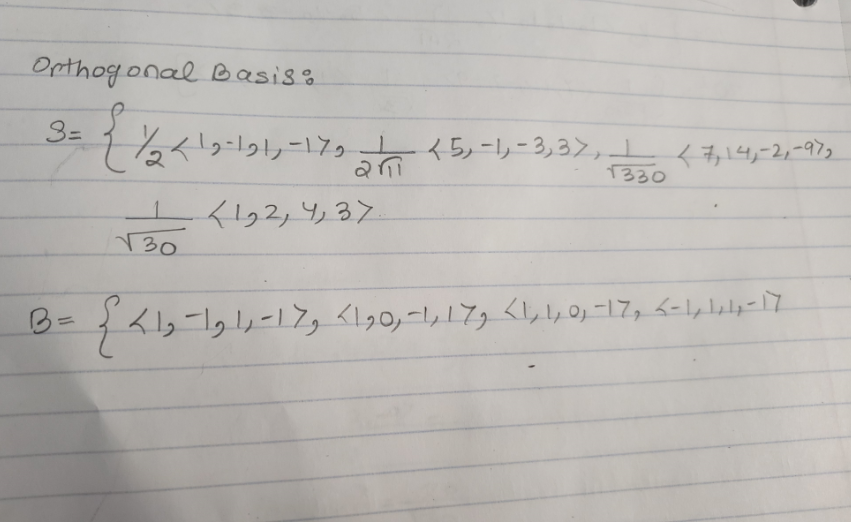 Orthogonal Basis:
S= { 1/2 <1,-1,1,-1>, 1/2√11 <5,-1,-3,3>, 1/√330 <7,14,-2,-9>,
1/√30 <1,2,4,3>
B= { <1,-1,1,-1>, <1,0,-1,1>, <1,1,0,-1>, <-1,1,1,-1>